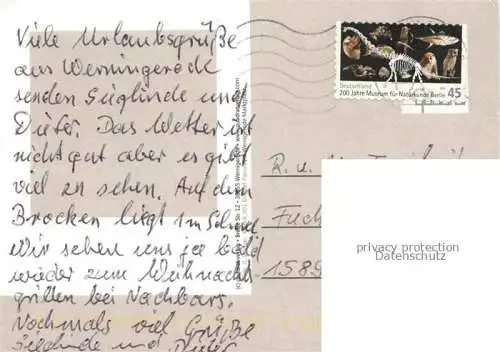 Viele Urlaubsgrüße
aus Werningerode
senden Sieglinde und
Dieter. Das Wetter ist
nicht gut aber es gibt
viel zu sehen. Auf dem
Brocken liegt 1m Schnee
Wir sehen uns ja bald
wieder zum Weihnacht-
grillen bei Nachbars.
Nochmals viel Grüße
Sieglinde und Dieter
Deutschland
200 Jahre Museum für Naturkunde Berlin
45
R. u.
Fuch
1589
privacy protection
Datenschutz